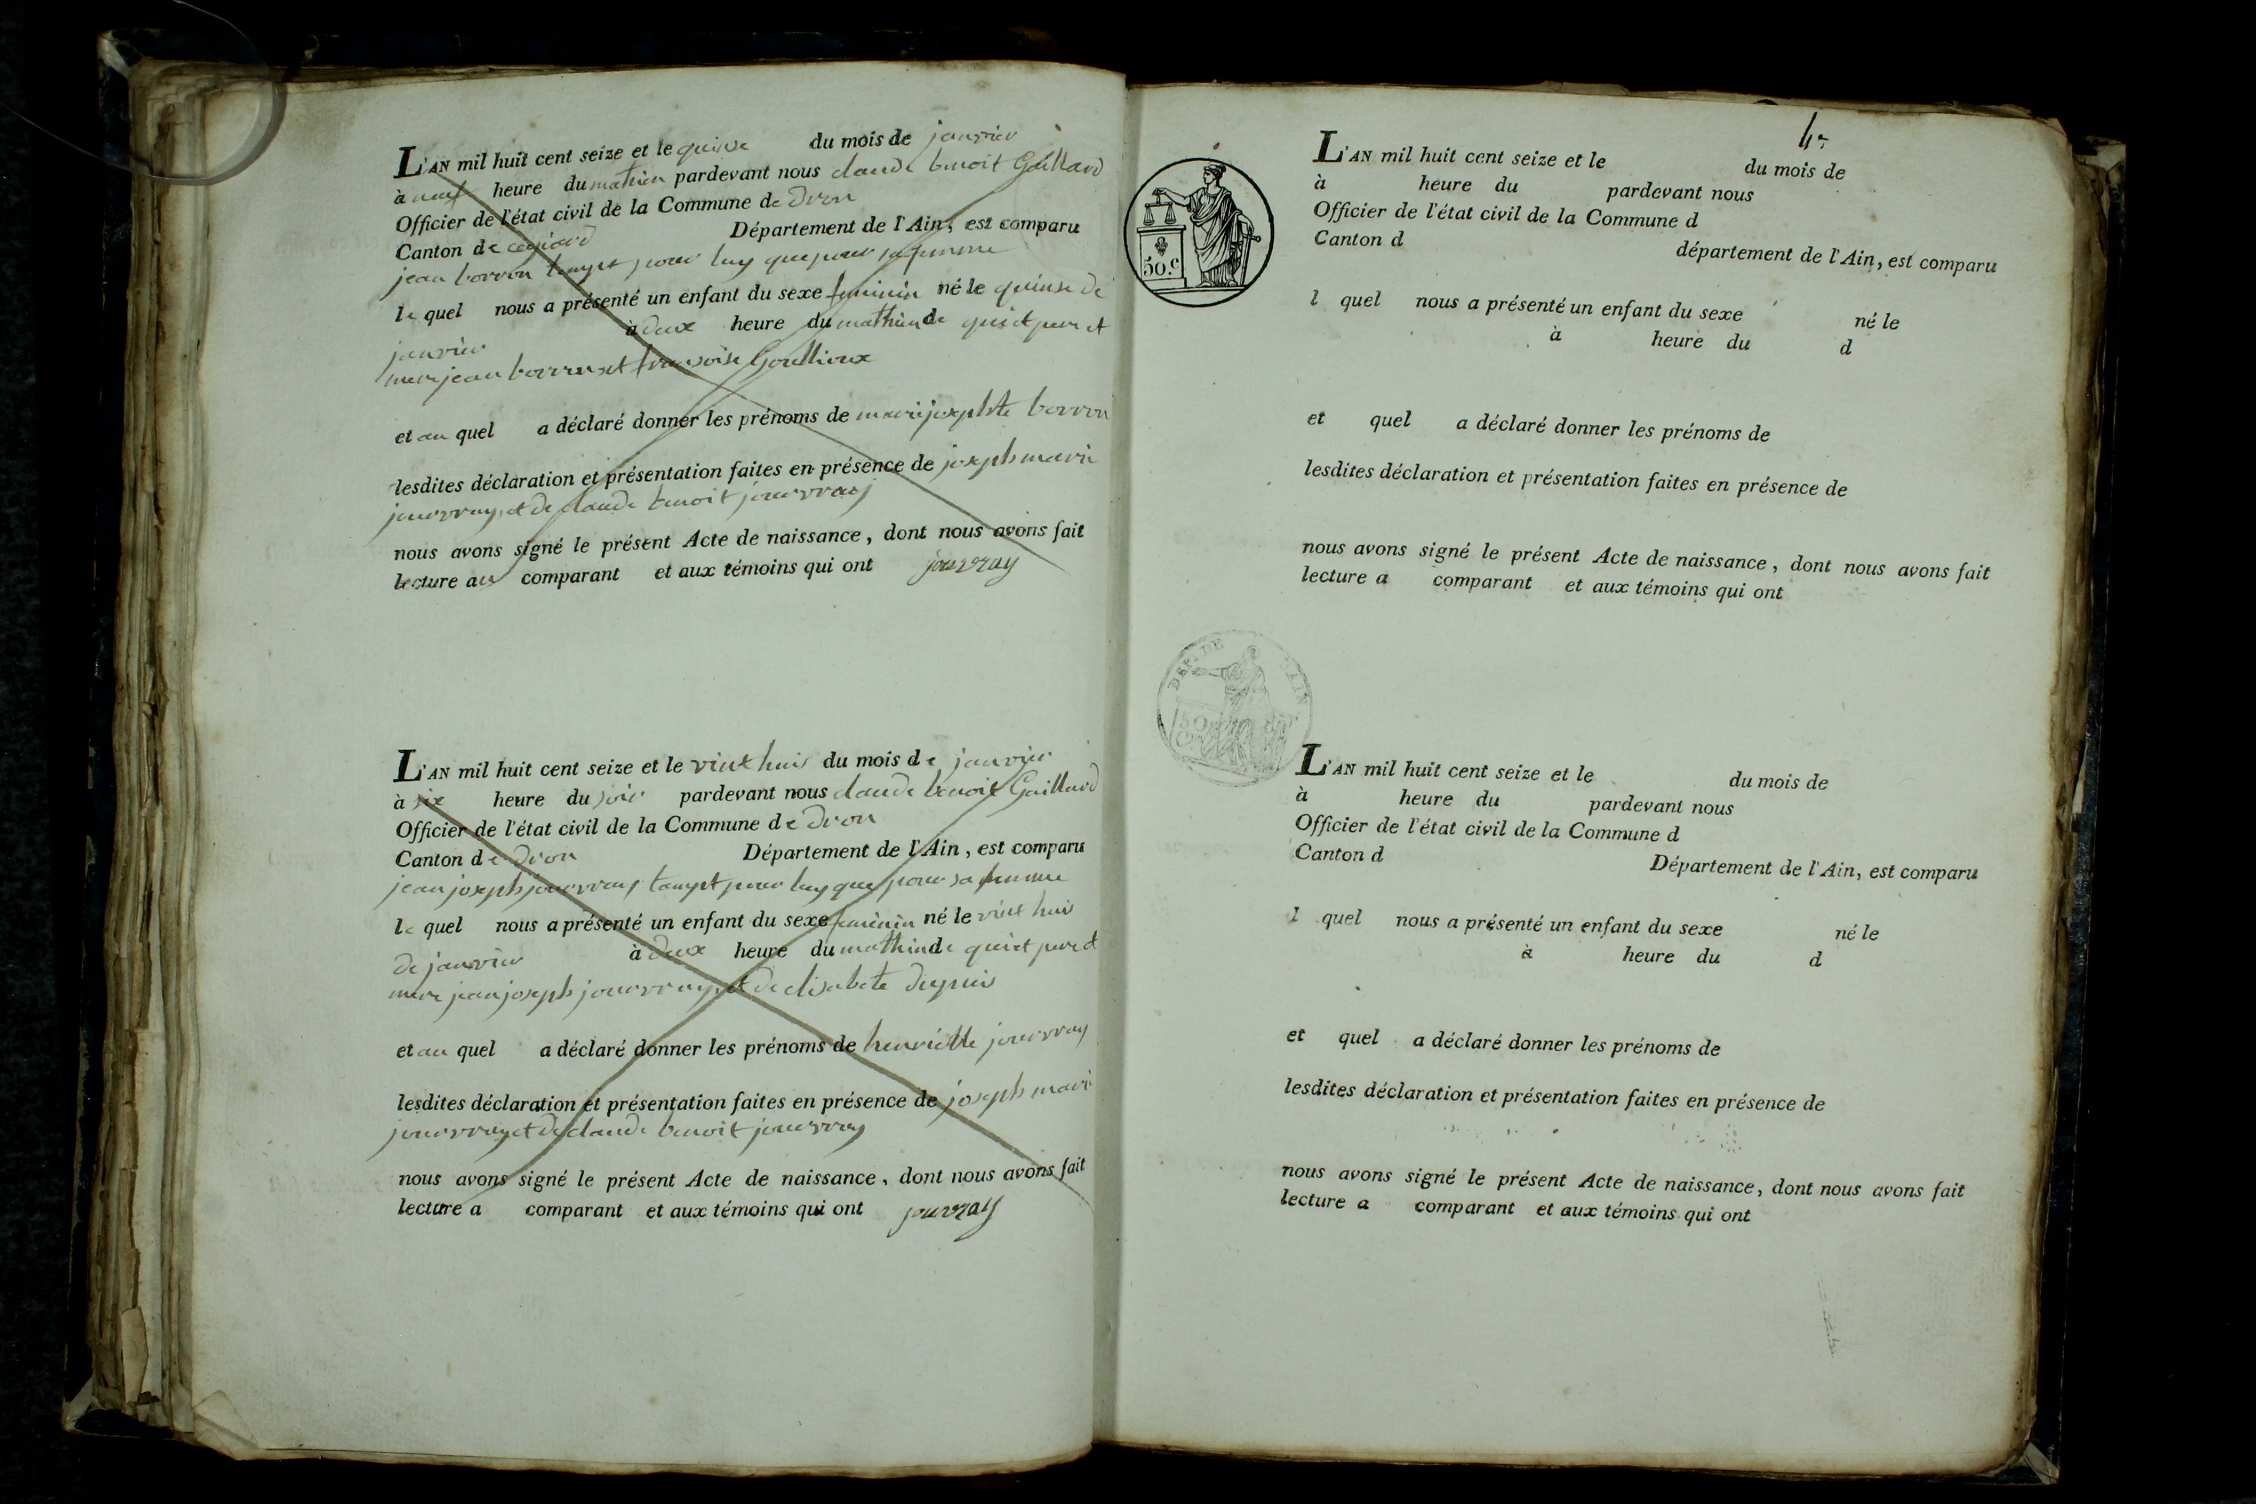 L'AN mil huit cent seize et le quinse du mois de janvier
à neuf heure du mathin pardevant nous claude benoit Gaillard
Officier de l'état civil de la Commune de Dron
Canton de Département de l'Ain, est comparu
jean borron pour luy que pour sa femme
le quel nous a présenté un enfant du sexe feminin né le quinse de
janvier à deux heure du mathin de qui et pere et
mere jean borron et fransoise Goullioux
et au quel a déclaré donner les prénoms de marijosephte borron
lesdites déclaration et présentation faites en présence de joseph marie
jouvray et de claude benoit jouvray
nous avons signé le présent Acte de naissance, dont nous avons fait
lecture au comparant et aux témoins qui ont jouvray
L'AN mil huit cent seize et le vint huis du mois de janvier
à six heure du soir pardevant nous claude benoit Gaillard
Officier de l'état civil de la Commune de Dron
Canton de Dron Département de l'Ain, est comparu
jean joseph jouvray pour luy que pour sa femme
le quel nous a présenté un enfant du sexe feminin né le vint huis
de janvier à deux heure du mathin de qui et pere et
mere jean joseph jouvray et de elisabete
et au quel a déclaré donner les prénoms de henriette jouvray
lesdites déclaration et présentation faites en présence de joseph mari
jouvray et de claude benoit jouvray
nous avons signé le présent Acte de naissance, dont nous avons fait
lecture a comparant et aux témoins qui ont jouvray
50.C
L'AN mil huit cent seize et le du mois de
à heure du pardevant nous
Officier de l'état civil de la Commune d
Canton d département de l'Ain, est comparu
l quel nous a présenté un enfant du sexe né le
à heure du d
et quel a déclaré donner les prénoms de
lesdites déclaration et présentation faites en présence de
nous avons signé le présent Acte de naissance, dont nous avons fait
lecture a comparant et aux témoins qui ont
L'AN mil huit cent seize et le du mois de
à heure du pardevant nous
Officier de l'état civil de la Commune d
Canton d Département de l'Ain, est comparu
l quel nous a présenté un enfant du sexe né le
à heure du d
et quel a déclaré donner les prénoms de
lesdites déclaration et présentation faites en présence de
nous avons signé le présent Acte de naissance, dont nous avons fait
lecture a comparant et aux témoins qui ont